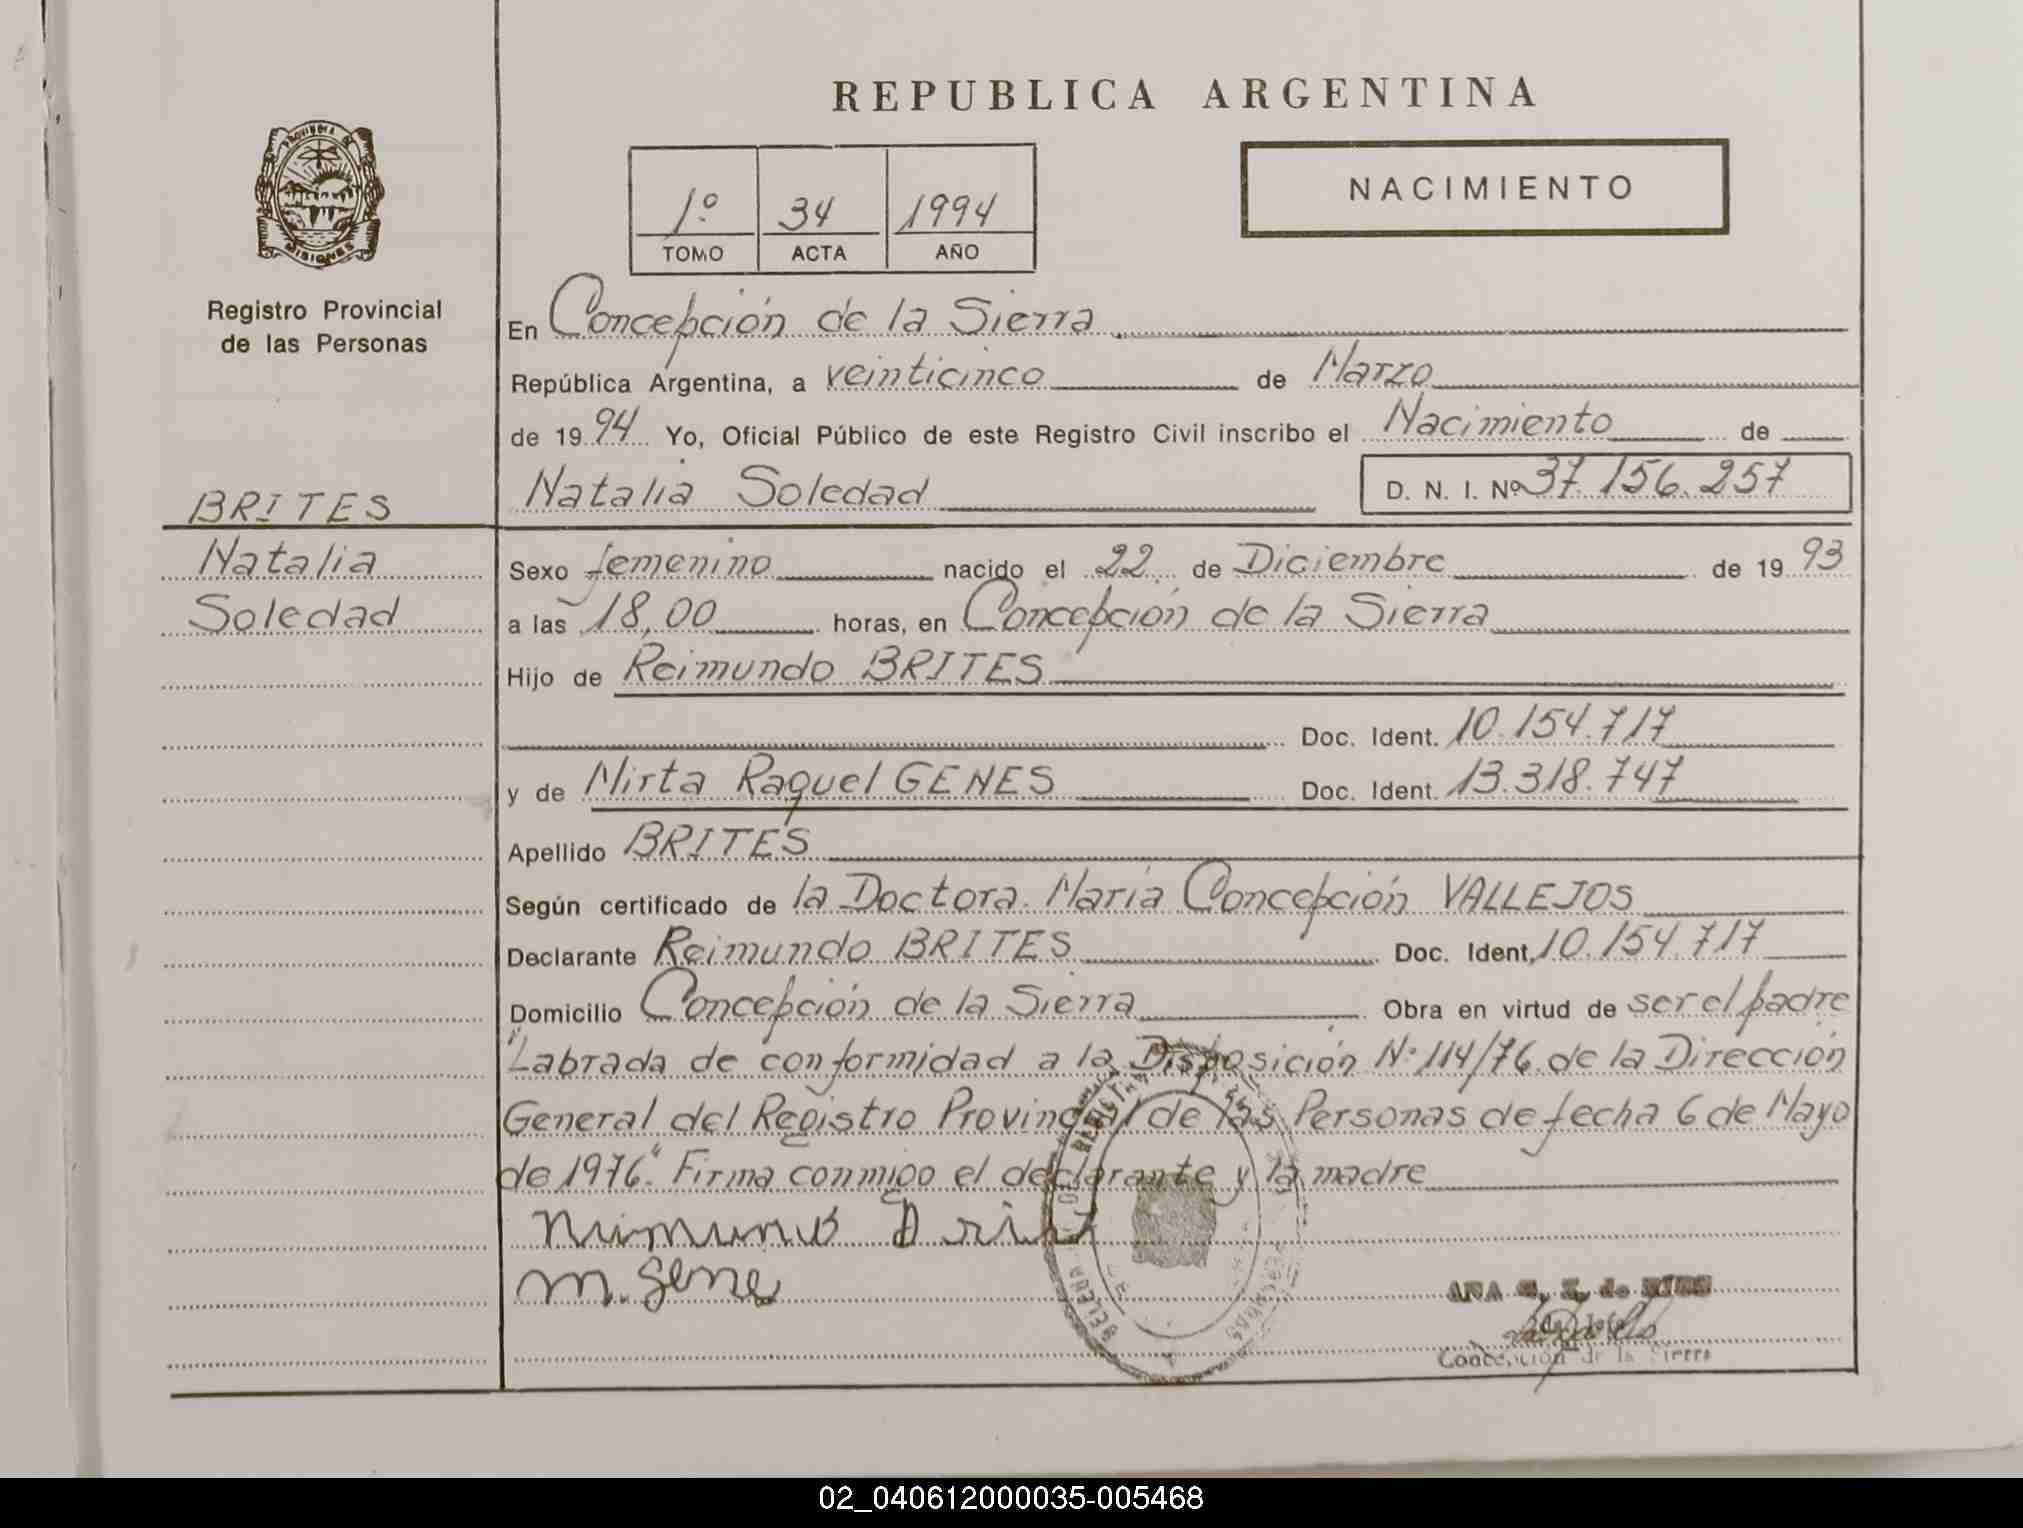 REPUBLICA ARGENTINA
PROVINCIA DE
MISIONES
Registro Provincial
de las Personas
NACIMIENTO
1º 34 1994
TOMO ACTA AÑO
En Concepción de la Sierra
República Argentina, a veinticinco de Marzo
de 1994 Yo, Oficial Público de este Registro Civil inscribo el Nacimiento de
Natalia Soledad D. N. I. Nº 37.156.257
BRITES
Natalia
Soledad
Sexo femenino nacido el 22 de Diciembre de 1993
a las 18,00 horas, en Concepción de la Sierra
Hijo de Reimundo BRITES
Doc. Ident. 10.154.717
y de Mirta Raquel GENES Doc. Ident. 13.318.747
Apellido BRITES
Según certificado de la Doctora María Concepción VALLEJOS
Declarante Reimundo BRITES Doc. Ident. 10.154.717
Domicilio Concepción de la Sierra Obra en virtud de ser el padre
"Labrada de conformidad a la Disposición Nº 114/76 de la Dirección
General del Registro Provincial de las Personas de fecha 6 de Mayo
de 1976". Firma conmigo el declarante y la madre
m. gene
ANA de
Concepción de la Sierra
02_040612000035-005468